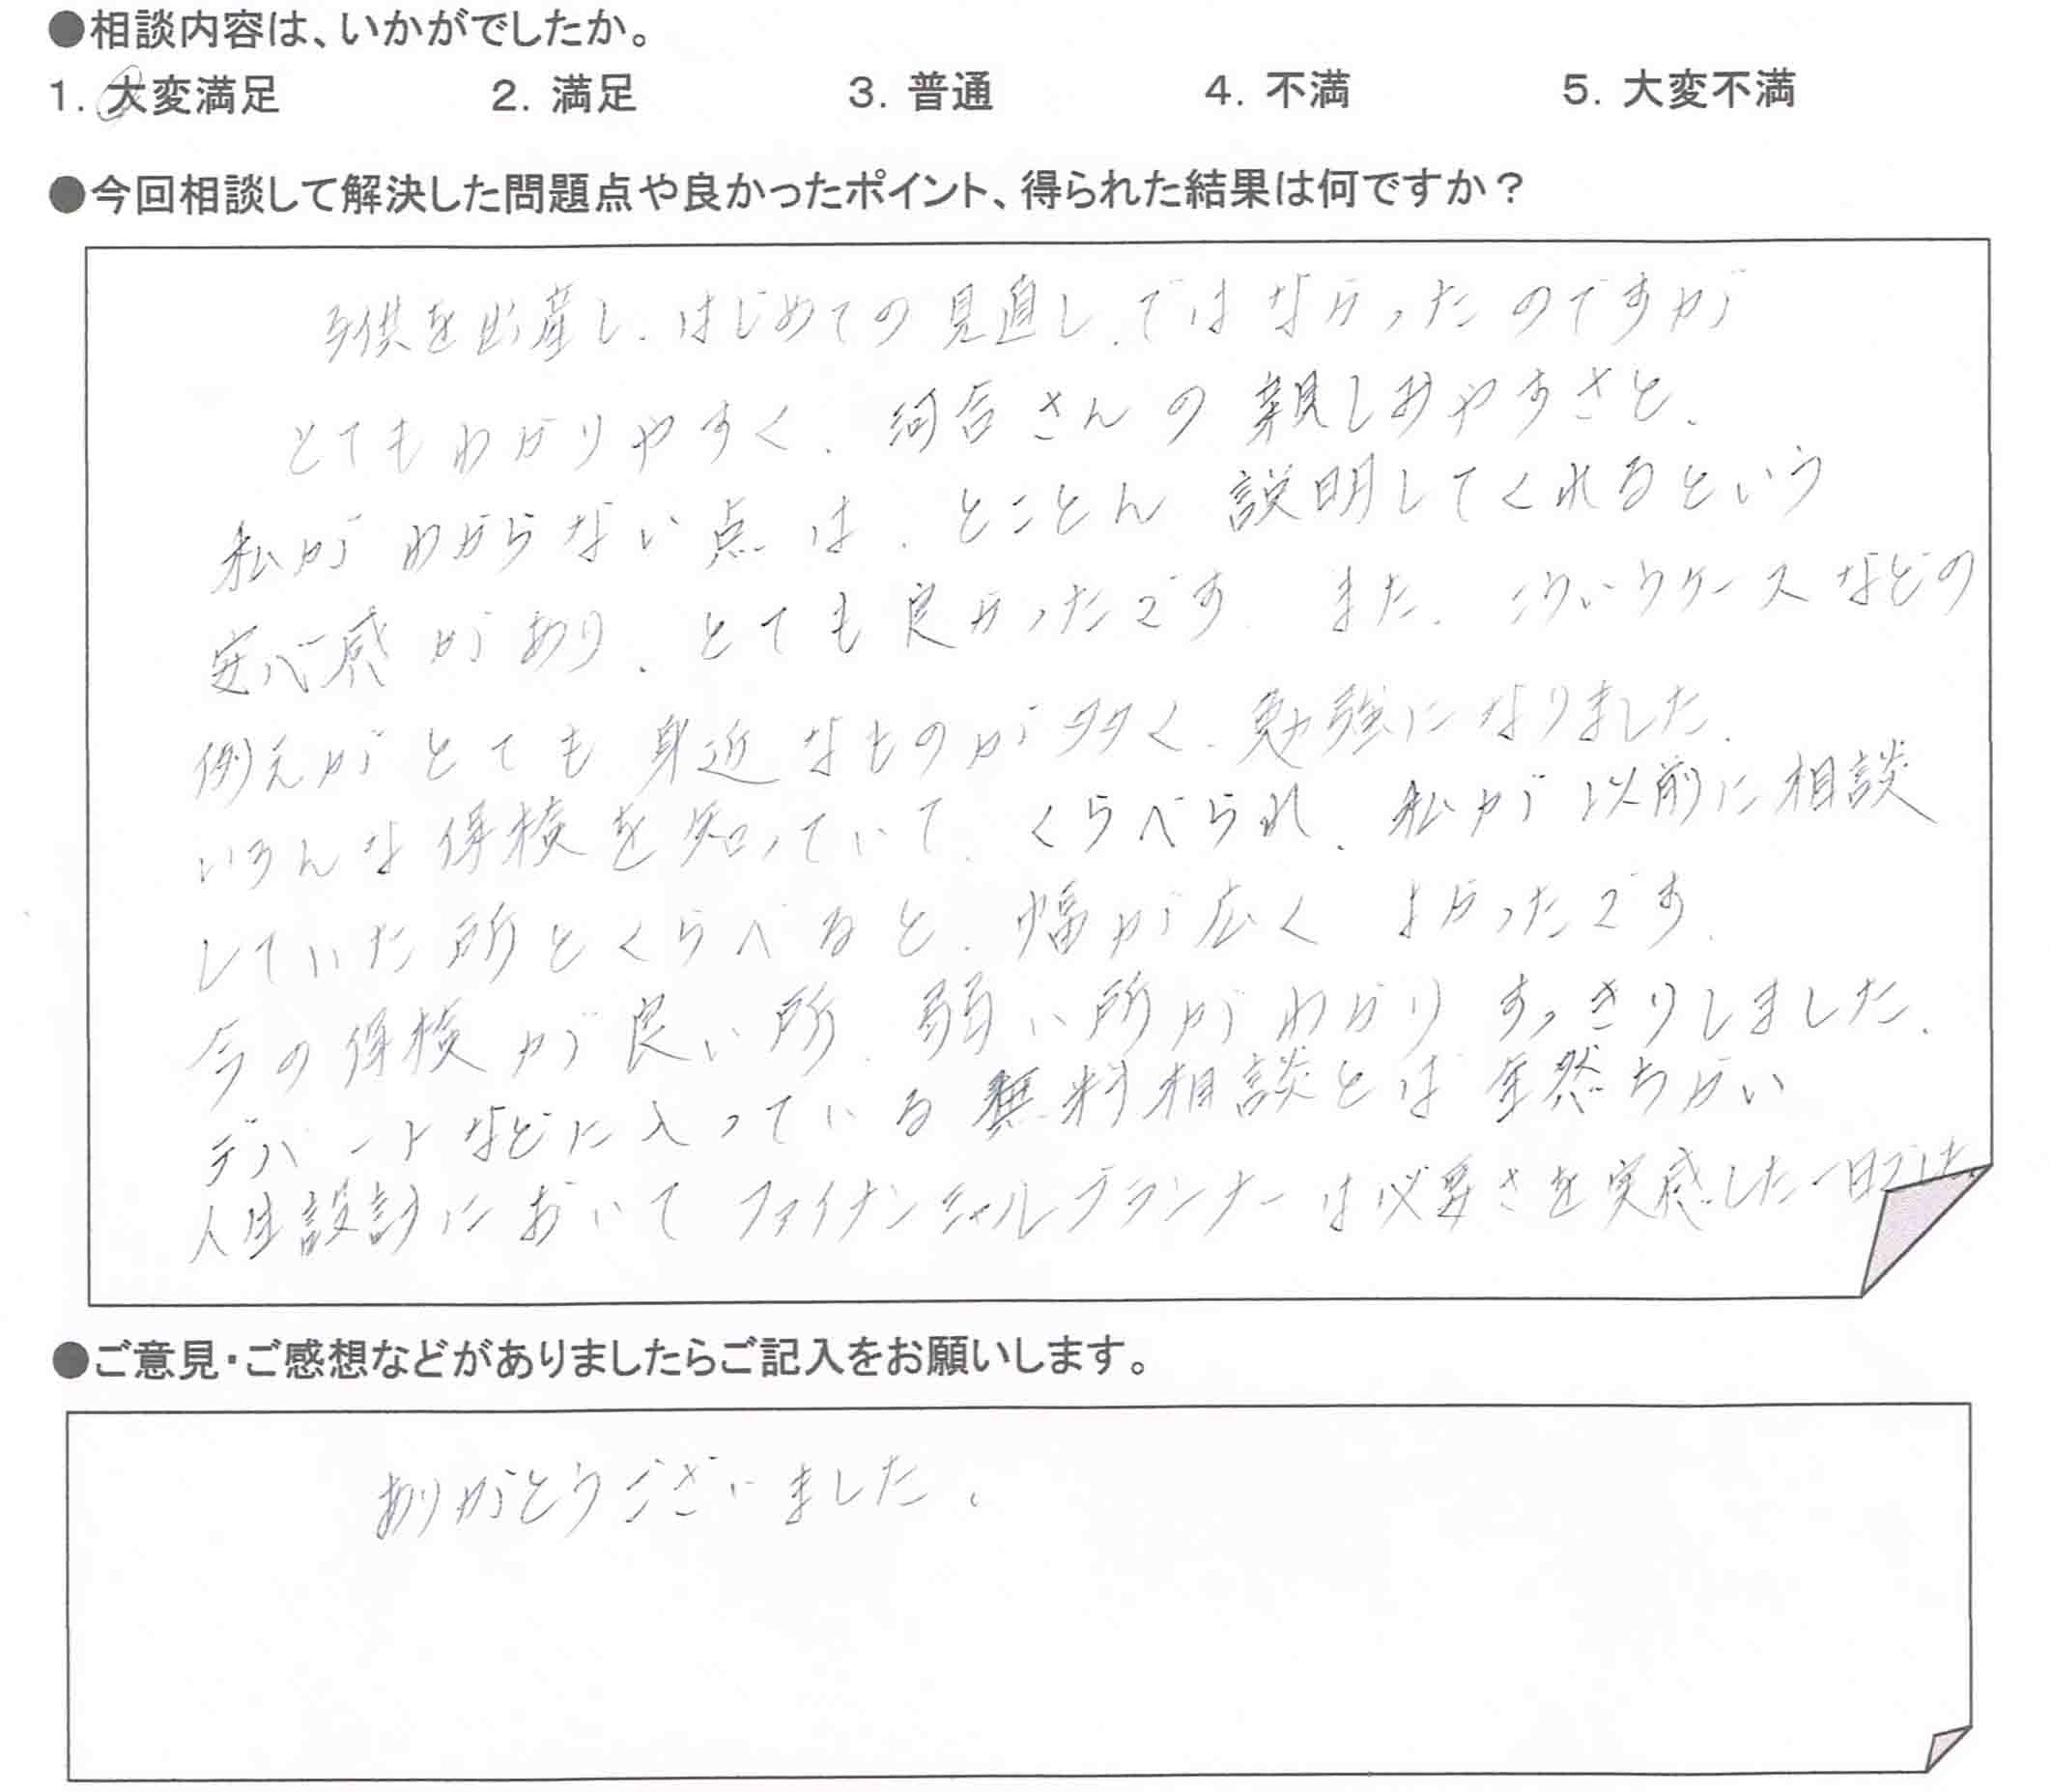 ●相談内容は、いかがでしたか。
1. 大変満足 2. 満足 3. 普通 4. 不満 5. 大変不満
●今回相談して解決した問題点や良かったポイント、得られた結果は何ですか？
子供を出産し、はじめての見直し、ではなかったのですが
とてもわかりやすく、河合さんの親しみやすさと、
私がわからない点は、とことん説明してくれるという
安心感があり、とても良かったです。また、こういうケースなどの
例えがとても身近なものが多く、勉強になりました。
いろんな保検を知っていて、くらべられ、私が以前に相談
していた所とくらべると、幅が広くよかったです。
今の保検が良い所、弱い所がわかりすっきりしました。
デパートなどに入っている無料相談とは全然ちがい
人生設計においてファイナンシャルプランナーは必要さを実感した一日でした。
●ご意見・ご感想などがありましたらご記入をお願いします。
ありがとうございました。